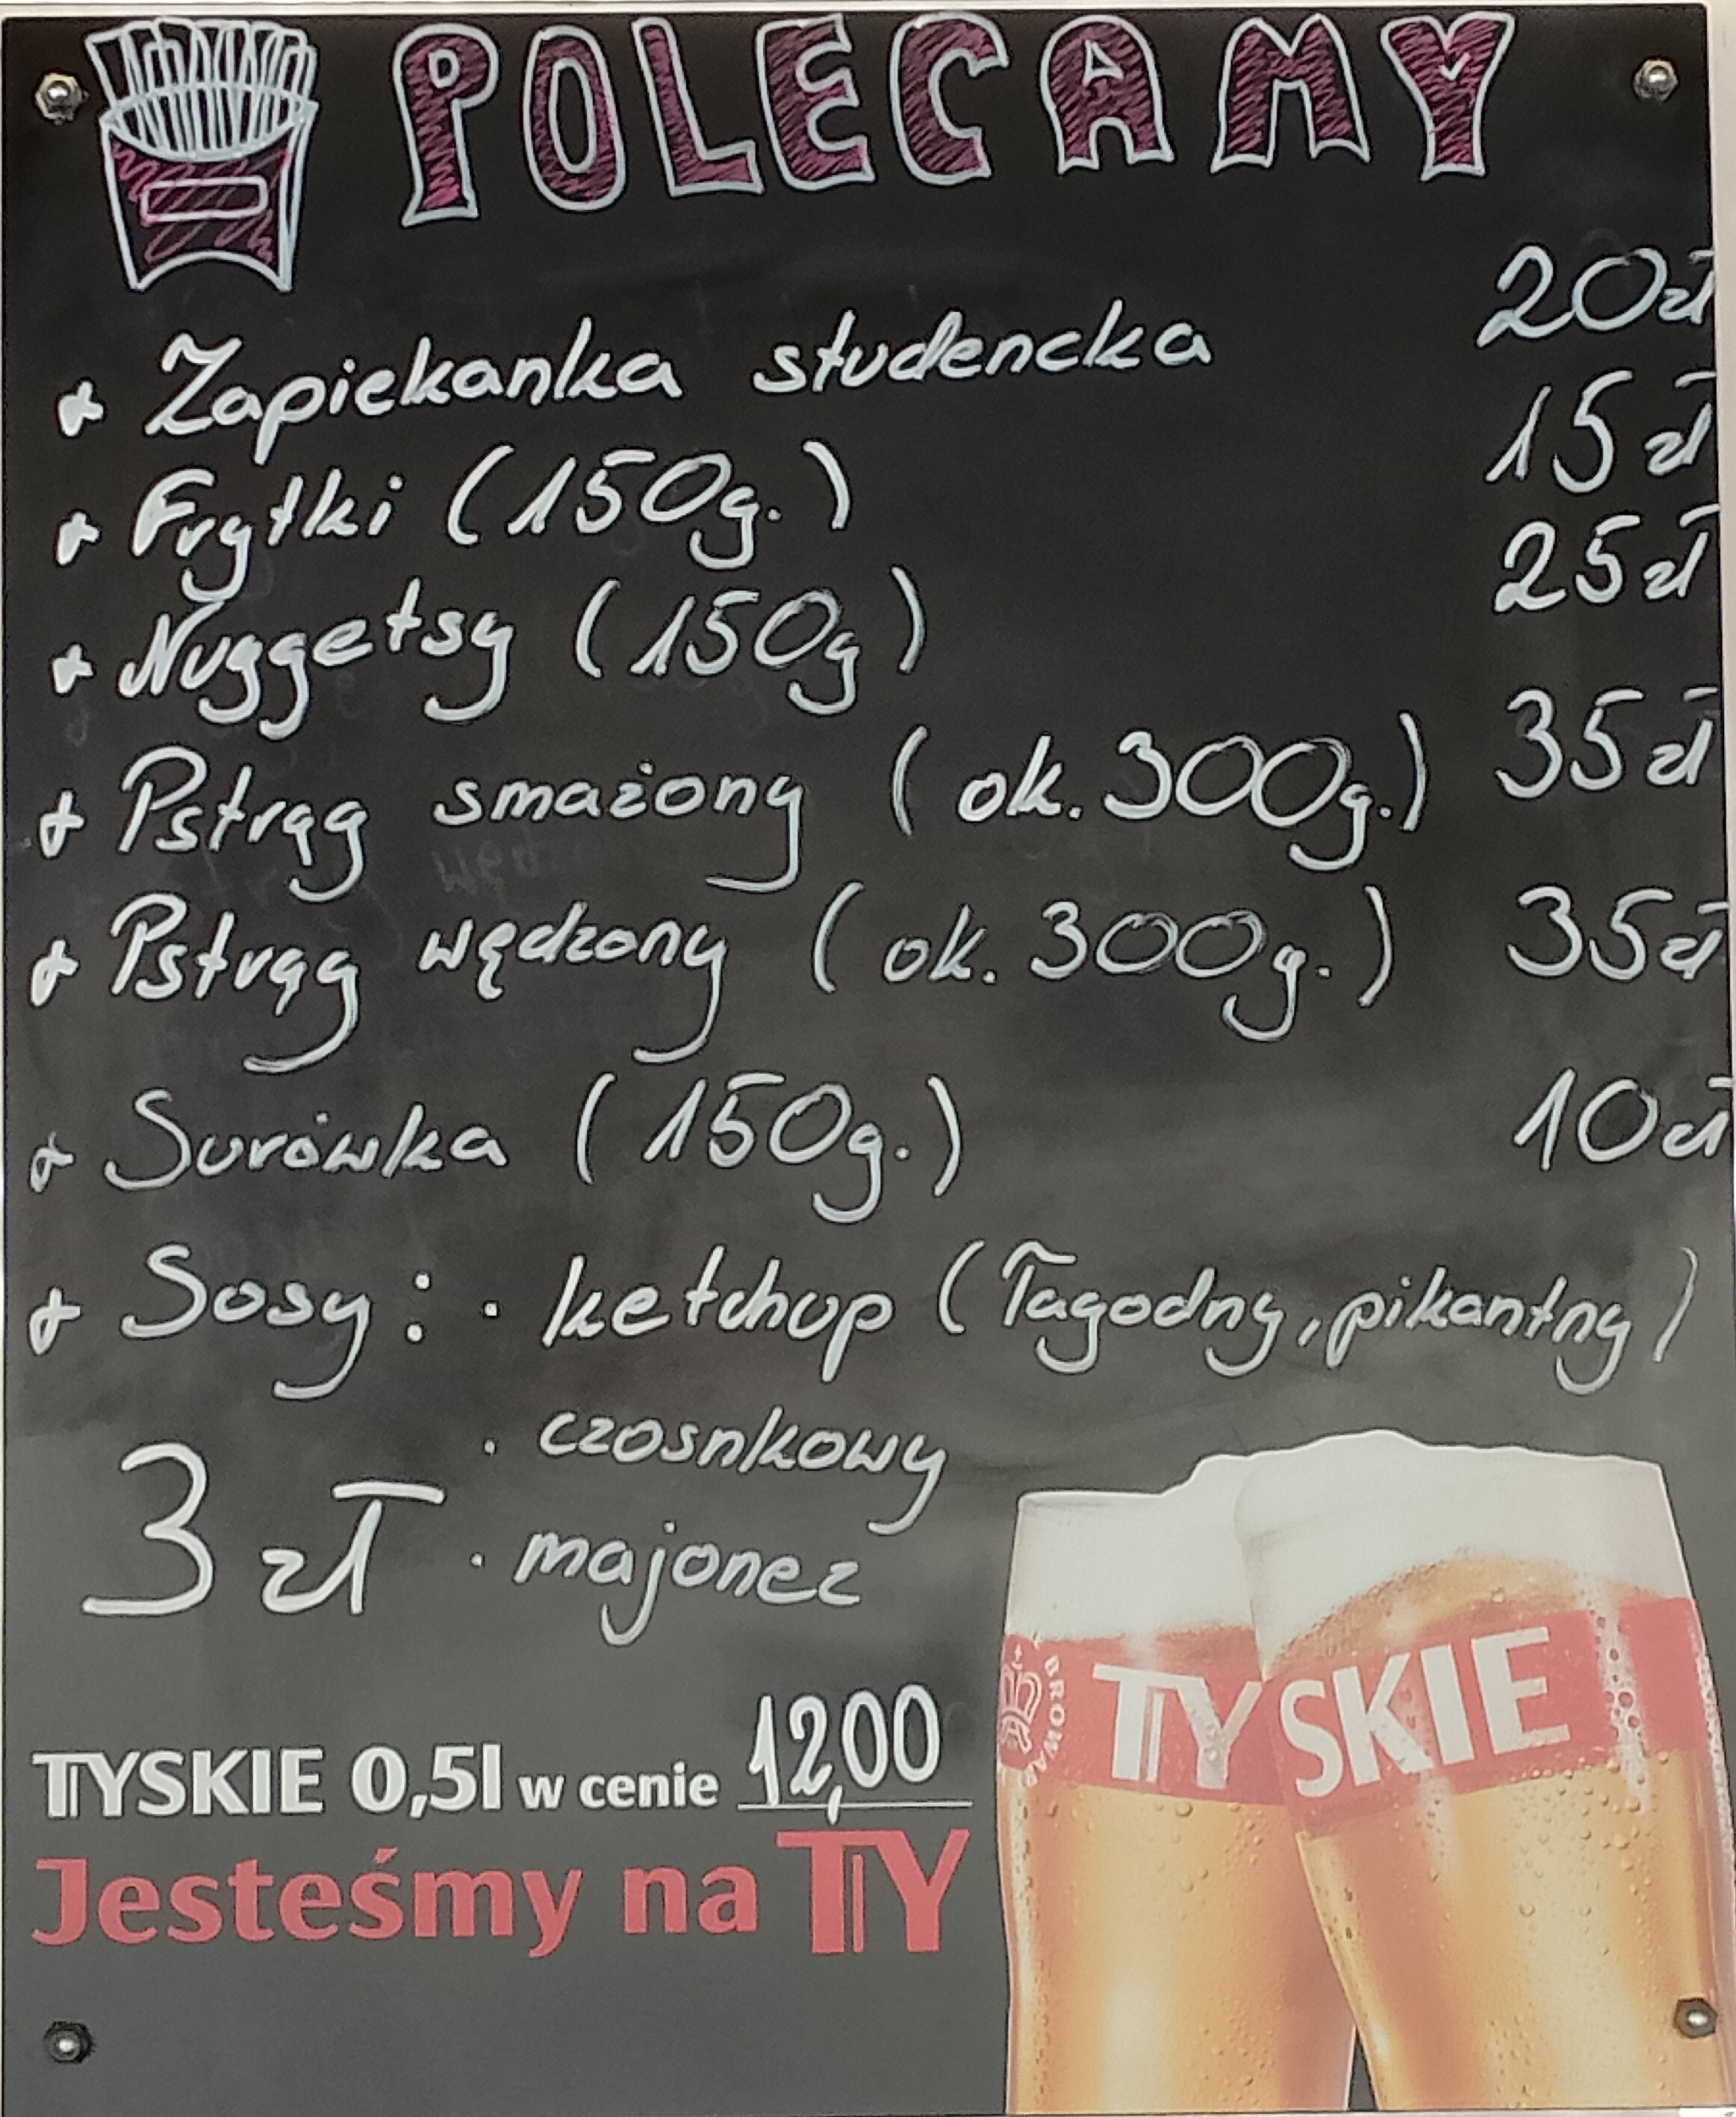 POLECAMY
+ Zapiekanka studencka 20zł
+ Frytki (150g.) 15zł
+ Nuggetsy (150g) 25zł
+ Pstrąg smażony (ok. 300g.) 35zł
+ Pstrąg wędzony (ok. 300g.) 35zł
+ Surówka (150g.) 10zł
+ Sosy: · ketchup (łagodny, pikantny)
· czosnkowy
3 zł · majonez
BROWAR TYSKIE
TYSKIE 0,5l w cenie 12,00
Jesteśmy na TY